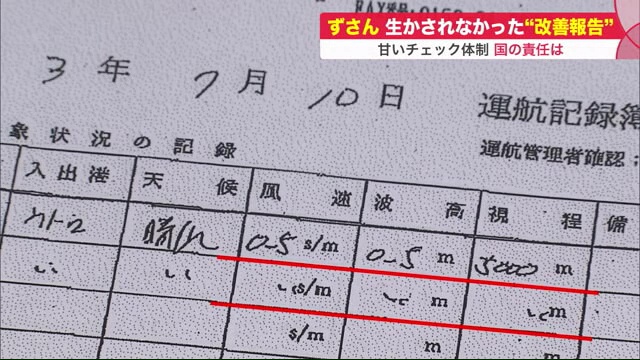 ずさん 生かされなかった“改善報告”
甘いチェック体制 国の責任は
3年 7月 10日
運航記録簿
象状況の記録
運航管理者確認:
入出港 天候 風速 波高 視程 備
ウトロ 晴れ 0-5 s/m 0-5 m 5000 m
〃 〃 〃 s/m 〃 m 〃 m
s/m m m